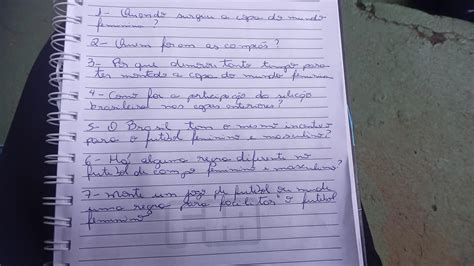 1- Quando surgiu a copa do mundo
feminina?
2- Quem foram as campeãs?
3- Por que demorou tanto tempo para
ter montado a copa do mundo feminina
4- Como foi a participação da seleção
brasileira nas copas anteriores?
5- O Brasil tem o mesmo incentivo
para o futebol feminino e masculino?
6- Há alguma regra diferente no
futebol de campo feminino e masculino?
7- Monte um jogo de futebol ou mude
uma regra para facilitar o futebol
feminino